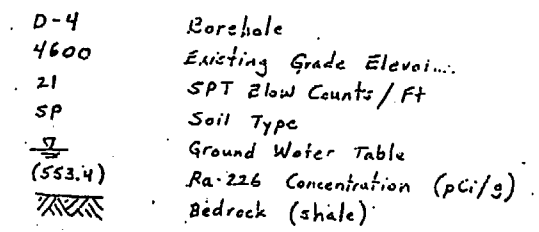 D-4 Borehole
4600 Existing Grade Elevai...
21 SPT Blow Counts / Ft
SP Soil Type
Ground Water Table
(553.4) Ra-226 Concentration (pCi/g)
Bedrock (shale)